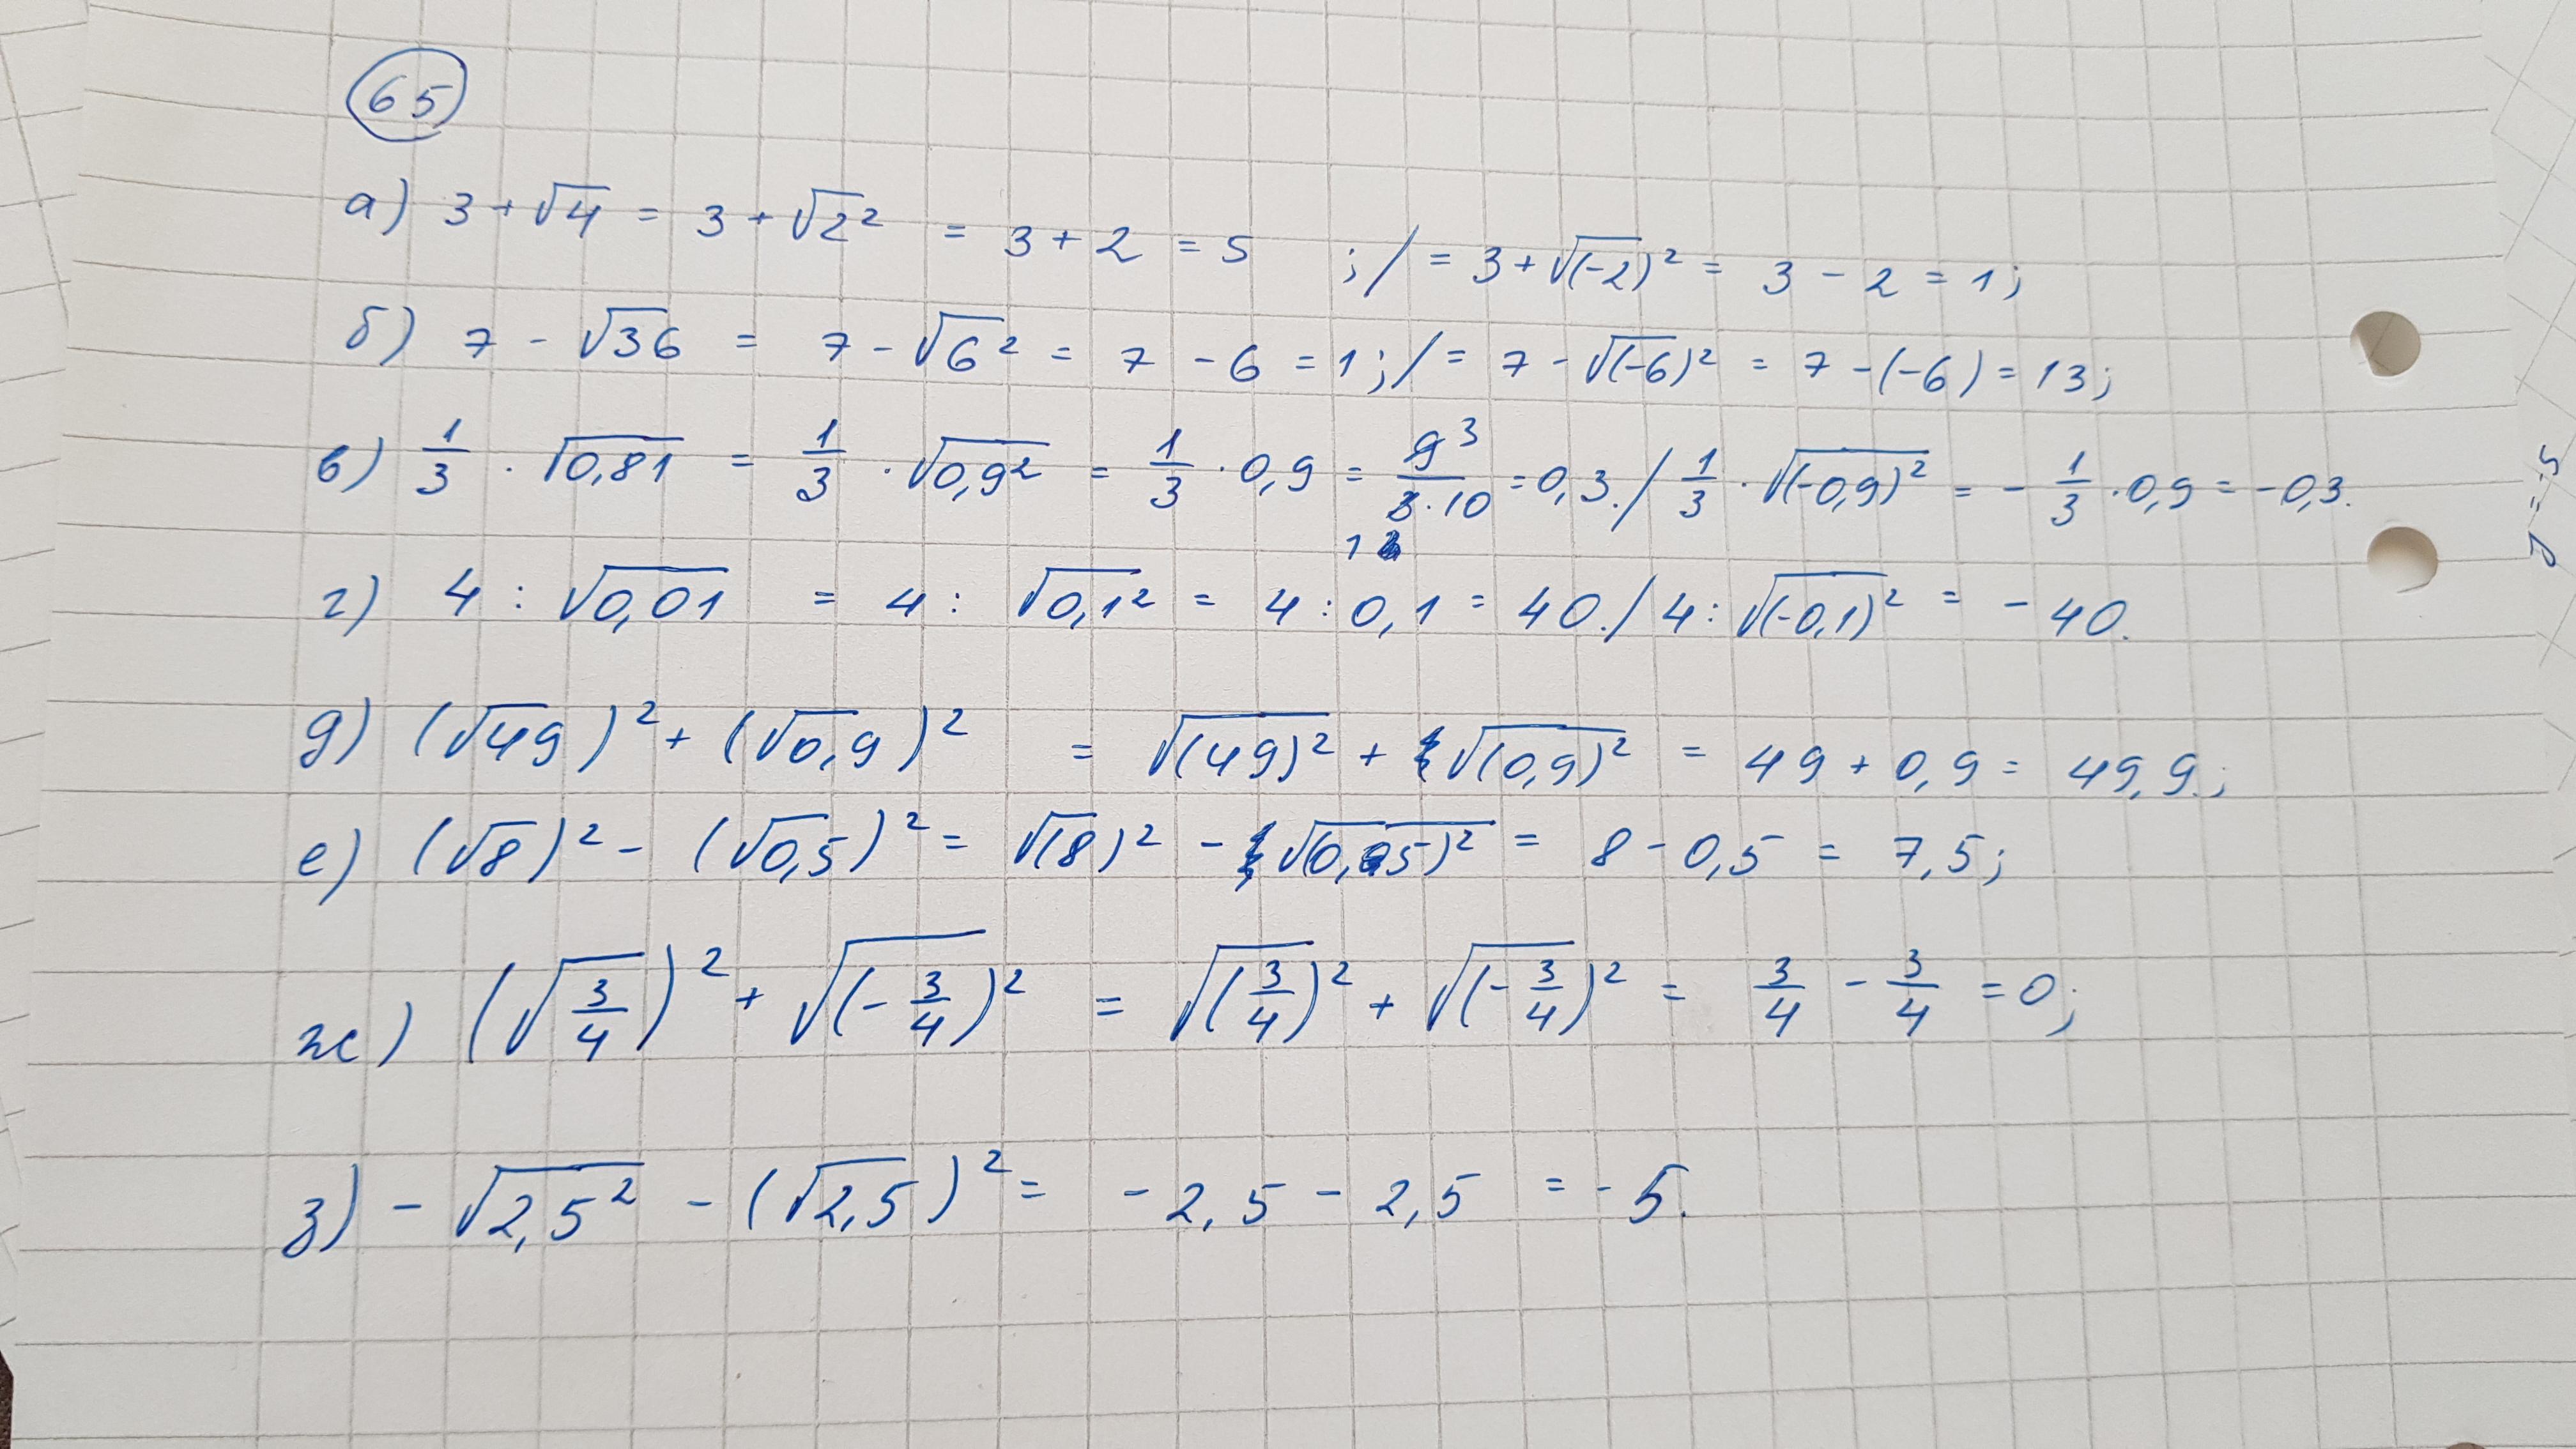 65
а) 3 + √4 = 3 + √2² = 3 + 2 = 5 ; / = 3 + √(-2)² = 3 - 2 = 1;
б) 7 - √36 = 7 - √6² = 7 - 6 = 1; / = 7 - √(-6)² = 7 - (-6) = 13;
в) 1/3 · √0,81 = 1/3 · √0,9² = 1/3 · 0,9 = 9 3 / 3·10 1 = 0,3. / 1/3 · √(-0,9)² = - 1/3 · 0,9 = -0,3.
г) 4 : √0,01 = 4 : √0,1² = 4 : 0,1 = 40. / 4 : √(-0,1)² = - 40.
д) (√49)² + (√0,9)² = √(49)² + √(0,9)² = 49 + 0,9 = 49,9.;
е) (√8)² - (√0,5)² = √(8)² - √(0,5)² = 8 - 0,5 = 7,5;
ж) (√3/4)² + √(-3/4)² = √(3/4)² + √(-3/4)² = 3/4 - 3/4 = 0;
з) - √2,5² - (√2,5)² = - 2,5 - 2,5 = - 5.